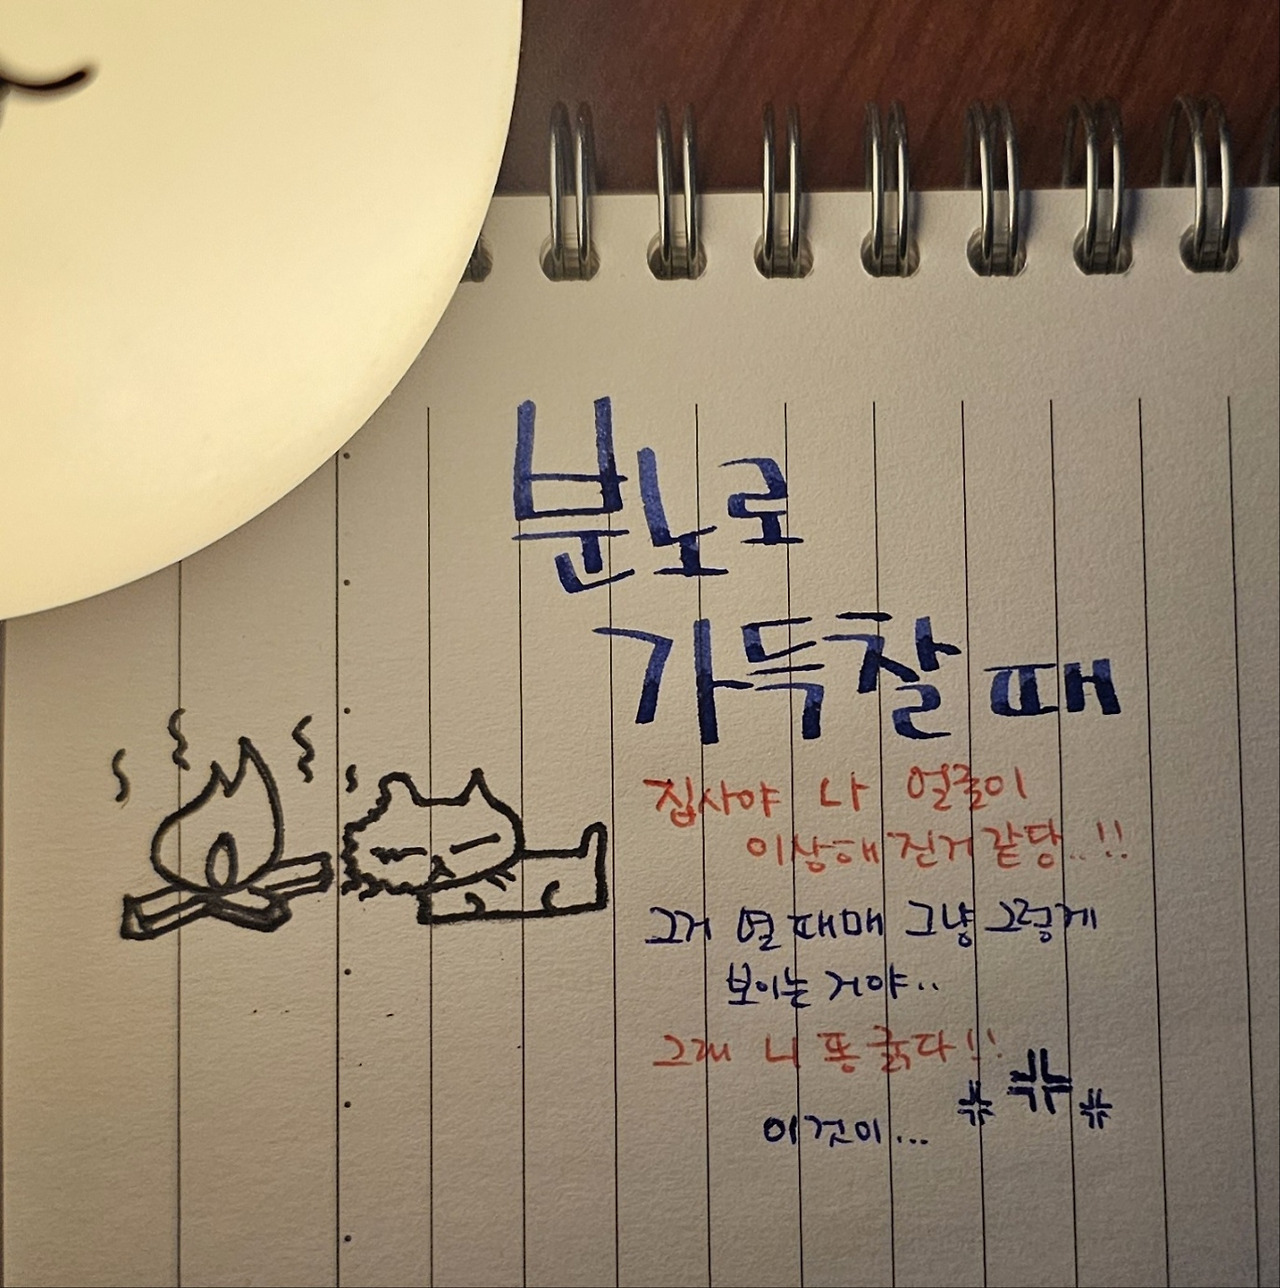 분노로
가득찰 때
집사야 나 얼굴이
이상해 진거 같당..!!
그거 열 때매 그냥 그렇게
보이는 거야..
그래 니 똥 굵다!!
이것이...